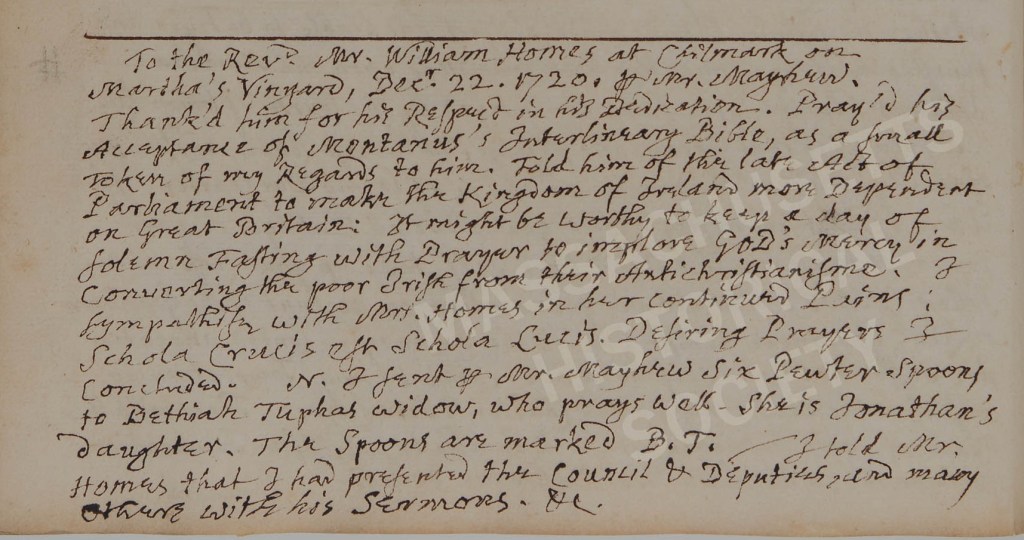 To the Revd. Mr. William Homes at Chilmark on
Martha's Vinyard, Decr. 22. 1720. ꝑ Mr. Mayhew.
Thank'd him for his Respect in his Dedication. Pray'd his
Acceptance of Montanus's Interlineary Bible, as a small
Token of my Regards to him. Told him of the late Act of
Parliament to make the Kingdom of Ireland more Dependent
on Great Britain: It might be worthy to keep a day of
solemn Fasting with Prayer to implore GOD's Mercy in
Converting the poor Irish from their Antichristianisme. I
sympathise with Mrs. Homes in her continued Pains;
Schola Crucis est Schola Lucis. Desiring Prayers I
Concluded. N. I sent ꝑ Mr. Mayhew Six Pewter Spoons
to Bethiah Tuphas widow, who prays well. She is Jonathan's
daughter. The Spoons are marked B. T. I told Mr.
Homes that I had presented the Council & Deputies, and many
others with his Sermons. &c.
MASSACHUSETTS
HISTORICAL
SOCIETY